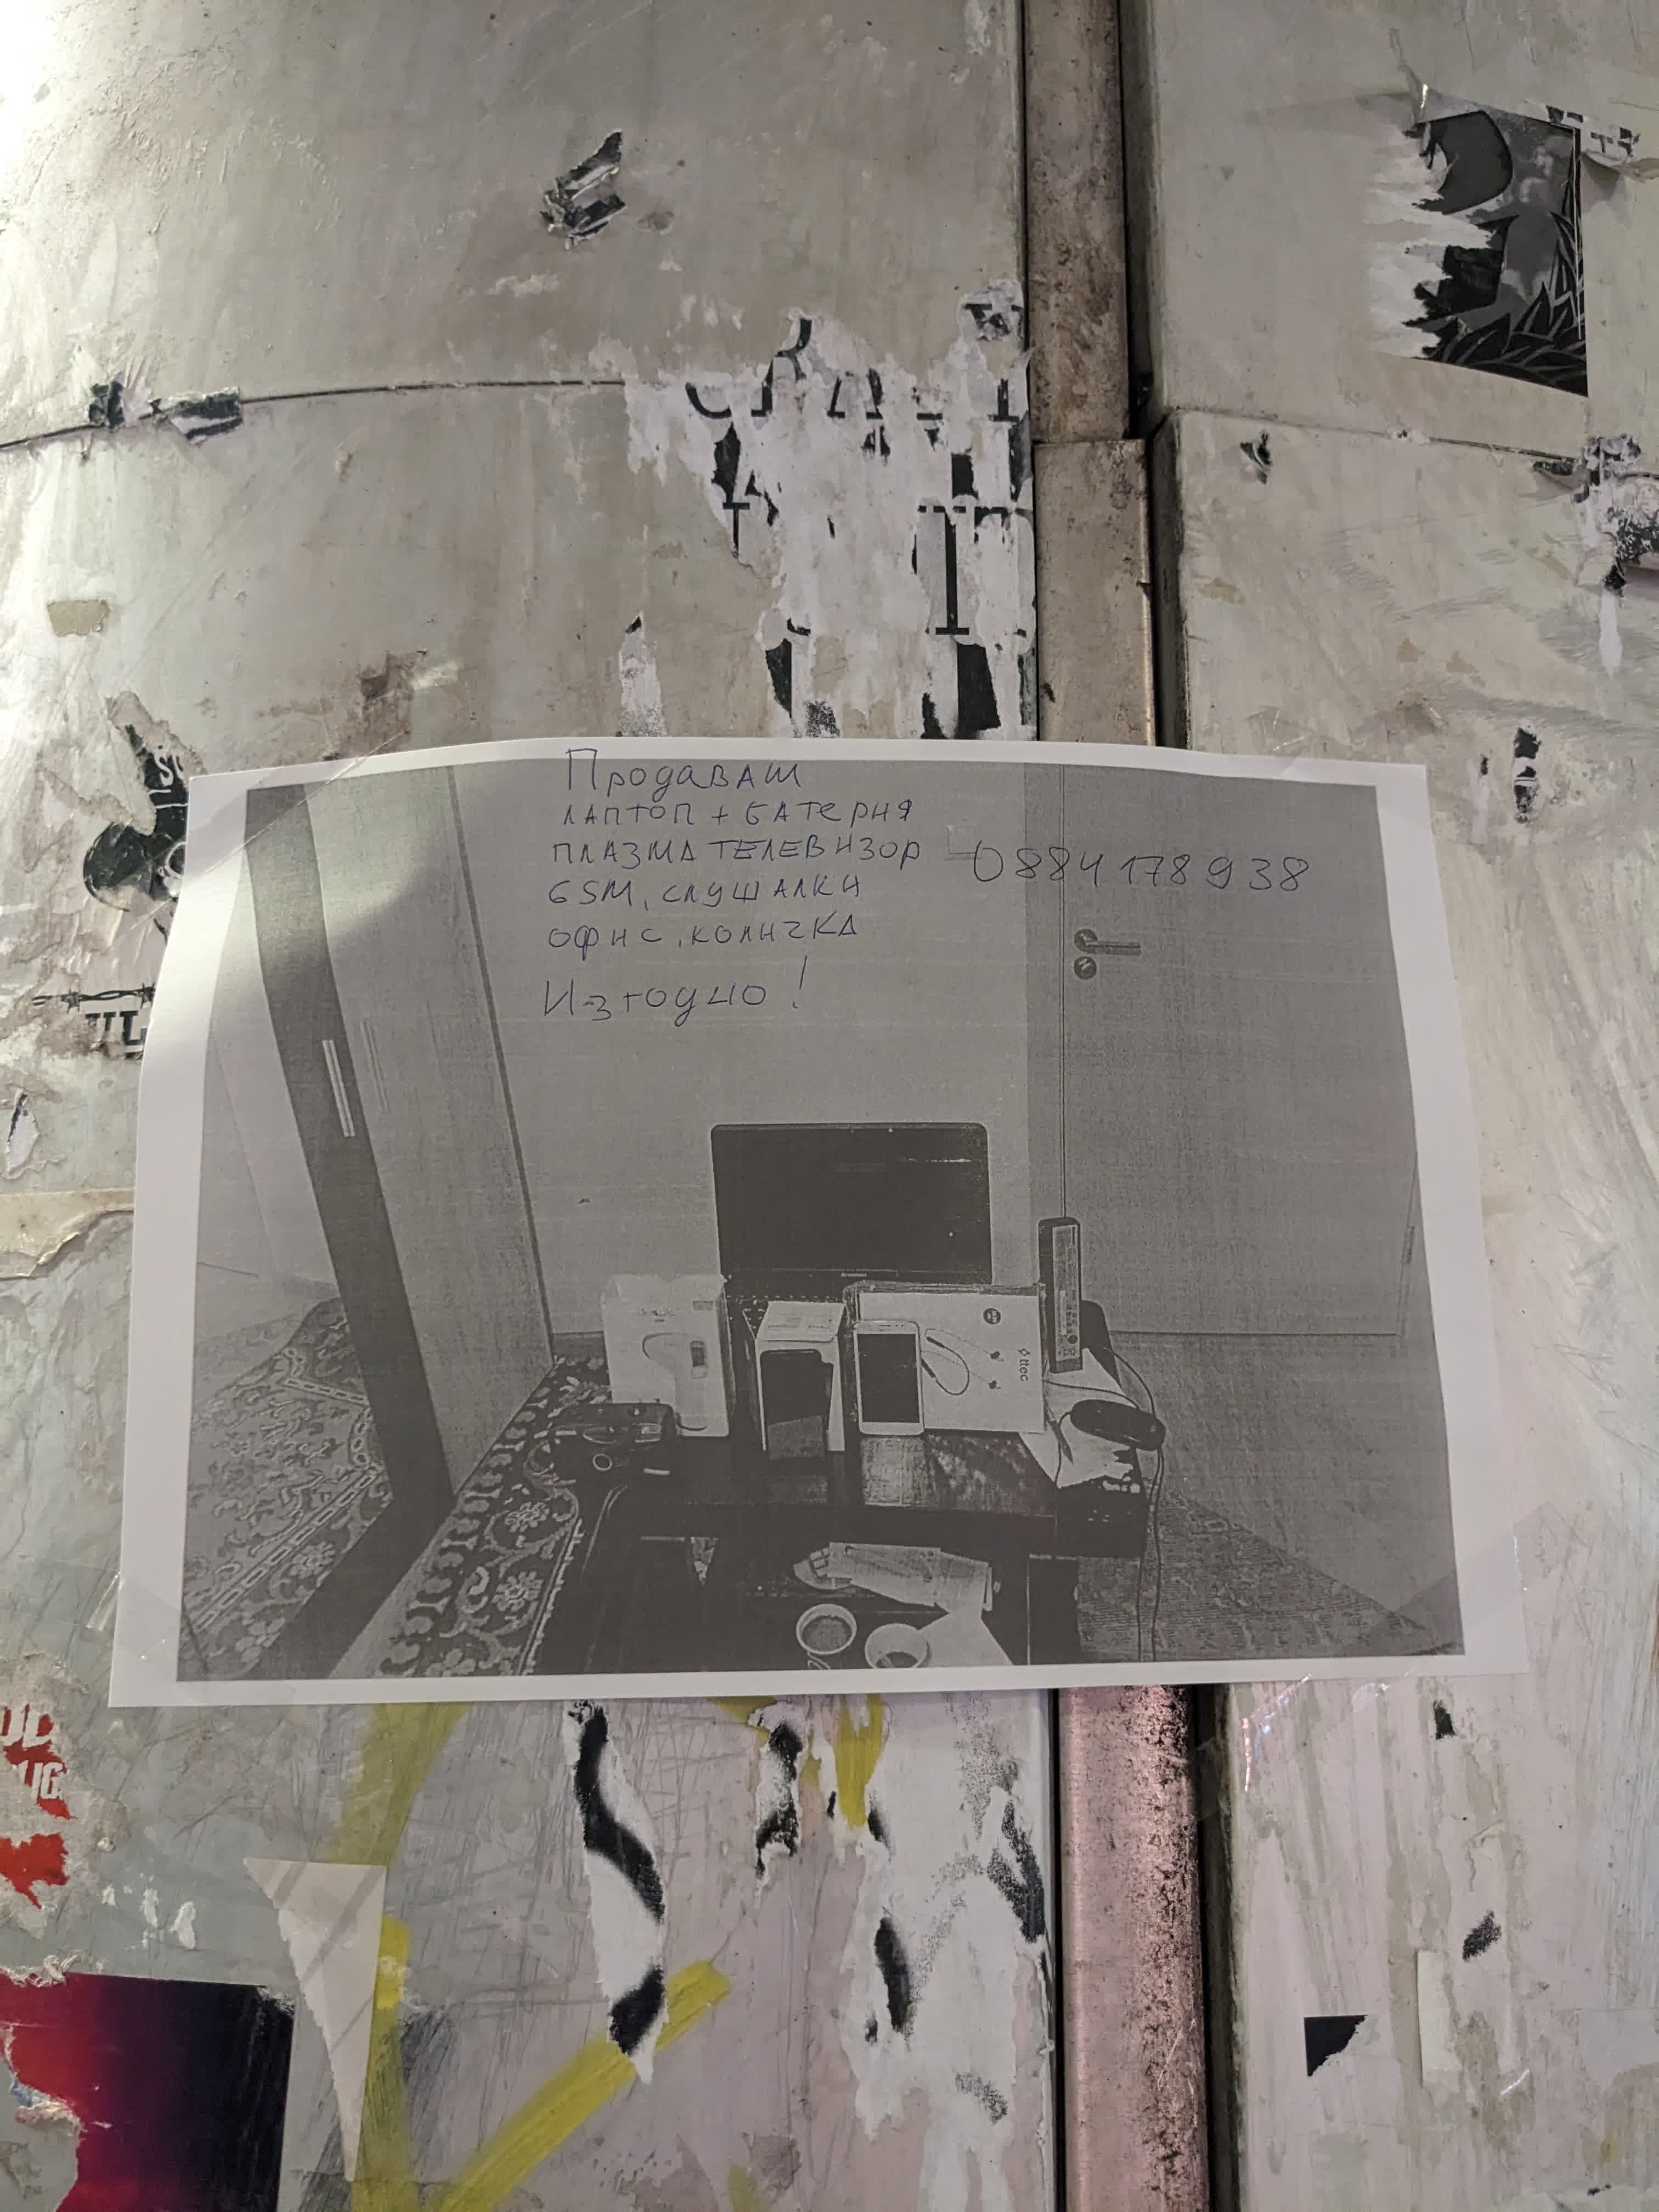 Продавам
ЛАПТОП + БАТЕРИЯ
ПЛАЗМА ТЕЛЕВИЗОР
GSM, СЛУШАЛКИ
ОФИС, КОЛИЧКА
Изгодно!
0884178938
lenovo
ttec